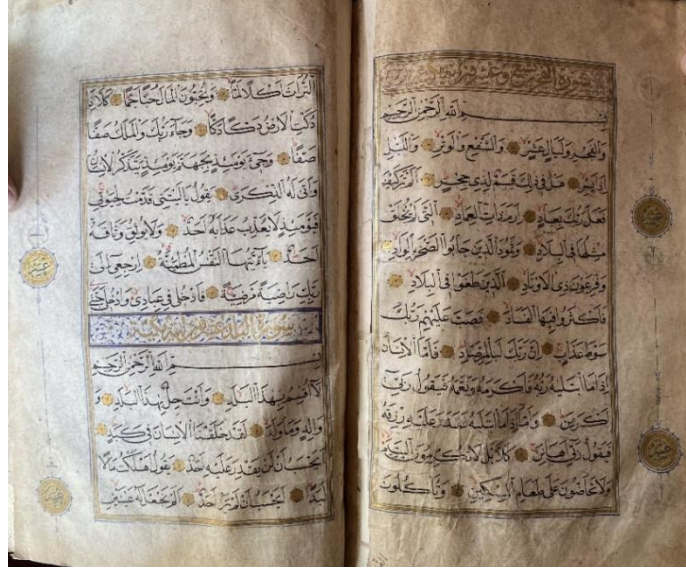 سورة الفجر تسع وعشرون اية مكية
بسم الله الرحمن الرحيم
والفجر وليال عشر والشفع والوتر والليل
اذا يسر هل في ذلك قسم لذي حجر الم تر كيف
فعل ربك بعاد ارم ذات العماد التي لم يخلق
مثلها في البلاد وثمود الذين جابوا الصخر بالواد
وفرعون ذي الاوتاد الذين طغوا في البلاد
فاكثروا فيها الفساد فصب عليهم ربك
سوط عذاب ان ربك لبالمرصاد فاما الانسان
اذا ما ابتليه ربه فاكرمه ونعمه فيقول ربي
اكرمن واما اذا ما ابتليه فقدر عليه رزقه
فيقول ربي اهانن كلا بل لا تكرمون اليتيم
ولا تحاضون على طعام المسكين وتاكلون
عشر
عشر
التراث اكلا لما وتحبون المال حبا جما كلا اذا
دكت الارض دكا دكا وجاء ربك والملك صفا
صفا وجئ يومئذ بجهنم يومئذ يتذكر الانسان
وانى له الذكرى يقول يا ليتني قدمت لحيوتي
فيومئذ لا يعذب عذابه احد ولا يوثق وثاقه
احد يا ايتها النفس المطمئنة ارجعي الى
ربك راضية مرضية فادخلي في عبادي وادخلي جنتي
سورة البلد عشرون اية مكية
بسم الله الرحمن الرحيم
لا اقسم بهذا البلد وانت حل بهذا البلد و
والد وما ولد لقد خلقنا الانسان في كبد ا
يحسب ان لن يقدر عليه احد يقول اهلكت مالا
لبدا ايحسب ان لم يره احد الم نجعل له عينين
عشر
عشر